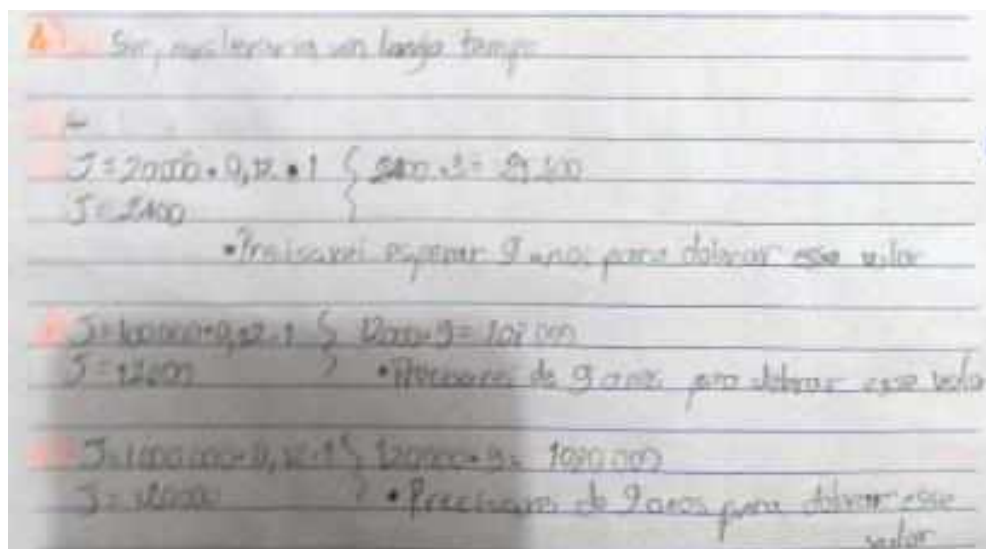 4) Sim, mas levaria um longo tempo
J = 20000 • 0,12 • 1 { 2400 • 9 = 21.600
J = 2400
• Precisarei esperar 9 anos para dobrar esse valor
J = 100000 • 0,12 • 1 { 12000 • 9 = 108000
J = 12000 • Precisarei de 9 anos pra dobrar esse valor
J = 1000000 • 0,12 • 1 { 120000 • 9 = 1080000
J = 120000 • Precisarei de 9 anos para dobrar esse
valor